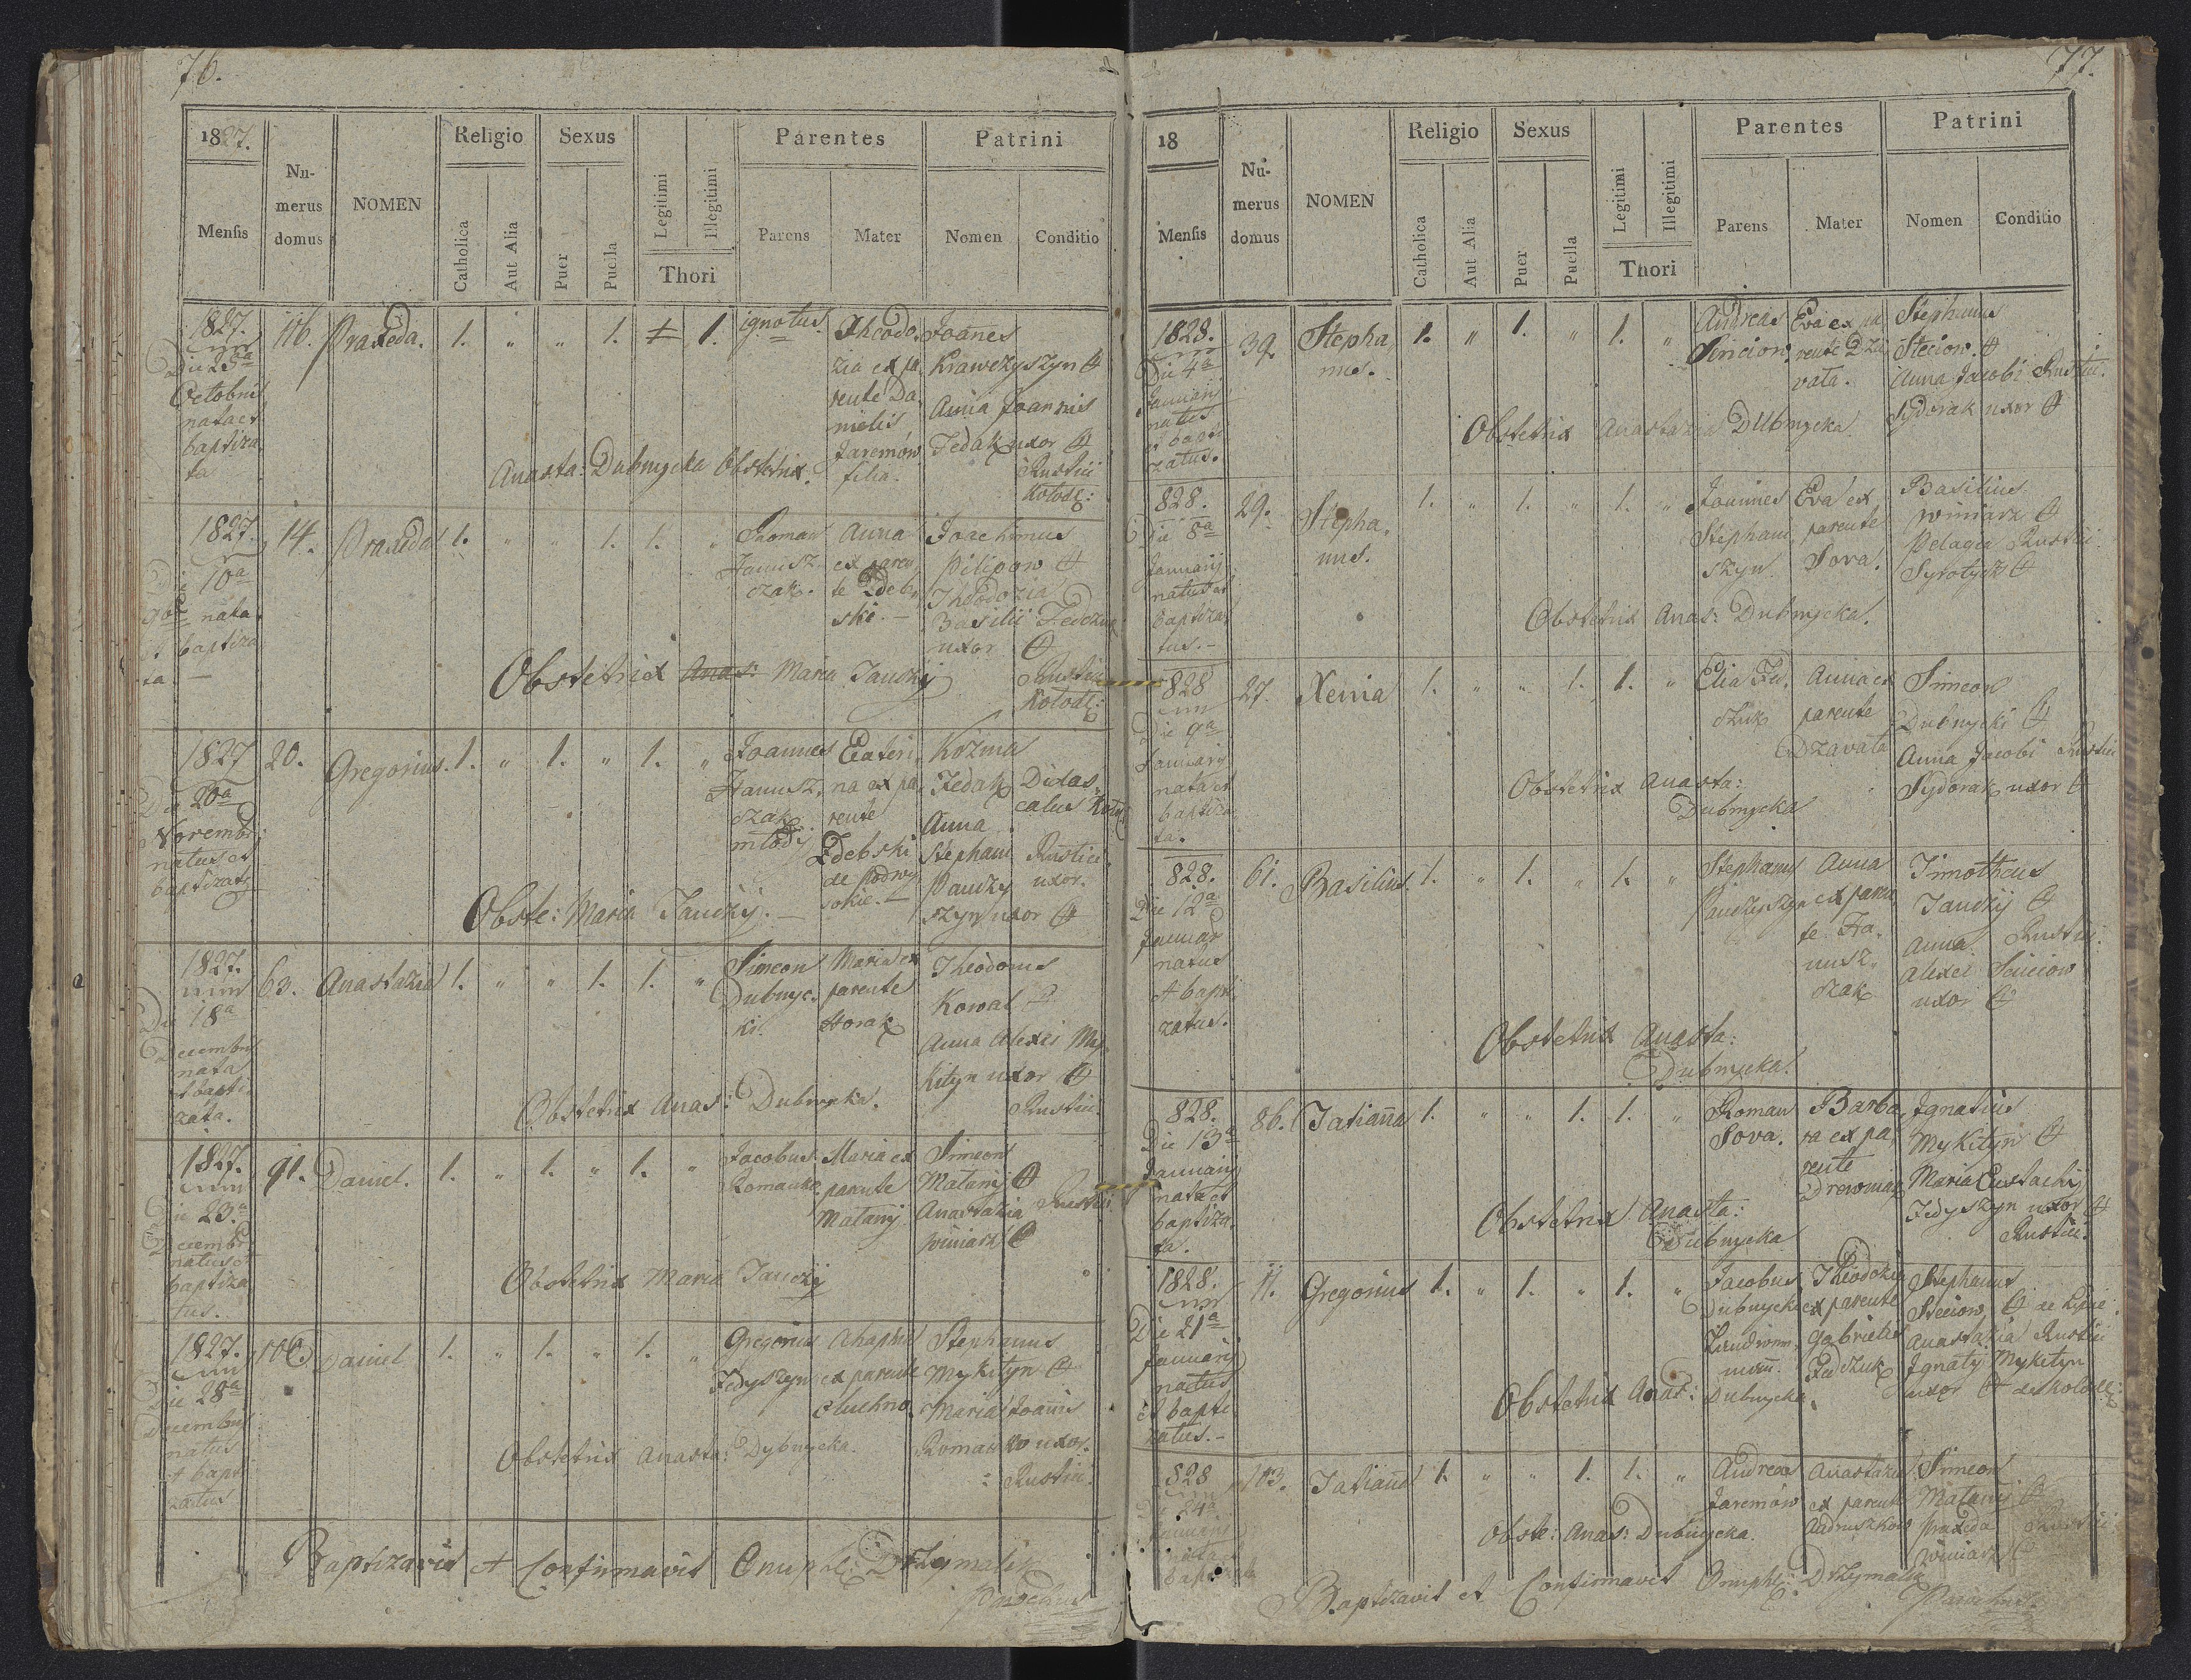 76.
1827.
Mensis
Nu-
merus
domus
NOMEN
Religio
Catholica
Aut Alia
Sexus
Puer
Puella
Legitimi
Illegitimi
Thori
Parentes
Parens
Mater
Patrini
Nomen
Conditio
1827.
Die 25a
Octobris
nata et
baptiza
ta
116.
Praxeda.
1. " " 1. 1 1.
ignotus.
Theodo,
zia ex pa,
rente Da,
nielis
Jaremów
filia.
Joanes
Krawczyszyn
Anna Joannis
Fedak uxor
Rustici
Kolode:
Anasta: Dubnycka Obstetrix.
1827.
Die 10a
9bris nata
et baptiza
ta
14.
Praxeda
1. " " 1. 1. "
Roman
Hanusz,
czak.
Anna
ex paren
te Zdeb,
ski.
Joachimus
Pilipow
Theodozia
Basilii Fedczuk
uxor
Rustici
Kolode:
Obstetrix Anas: Maria Jauczij
1827
Die 20a
Novembr:
natus et
baptizatus
20.
Gregorius.
1. " 1. " 1. "
Joannes
Hanusz,
czak
mlodij
Cateri,
na ex pa,
rente
Zdebski
de Podwy
sokie.
Kozma
Fedak Didas,
calus
Anna
Stephani Rustici
Pauczy uxor.
szyn uxor
Obste: Maria Jauczij.
1827.
Die 18a
Decembris
nata
et bapti
zata.
63.
Anastazia
1. " " 1. 1. "
Simeon
Dubnyc,
ki.
Maria ex
parente
Horak
Theodorus
Kowal
Anna Alexii My,
kityn uxor
Rustici.
Obstetrix Anas: Dubnycka.
1827.
Die 23a
Decembr
natus et
baptiza
tus.
91.
Daniel.
1. " 1. " 1. "
Jacobus
Romanko
Maria ex
parente
Matanij
Simeon
Matanij
Anastazia Rustici
Winiarz
Obstetrix Maria Jauczij
1827.
Die 28a
Decembris
natus
et bapti
zatus
100
Daniel
1. " 1. " 1. "
Gregorius
Fedyszyn
Ahaphia
ex parente
Stephanus
Mykityn
Maria Joanis
Romanko uxor.
Rustici.
Obstetrix Anasta: Dybnycka.
Baptizavit et Confirmavit Onuph: Drzymalik
Parochus
77.
18
Mensis
Nu-
merus
domus
NOMEN
Religio
Catholica
Aut Alia
Sexus
Puer
Puella
Legitimi
Illegitimi
Thori
Parentes
Parens
Mater
Patrini
Nomen
Conditio
1828.
Die 4a
Januarij
natus
et bapti
zatus.
39.
Stepha,
nus.
1. " 1. " 1. "
Andreas
Senciow.
Eva ex pa
rente Dza
vata.
Stephanus
Steciow.
Anna Jacobi Rustici.
Sydorak uxor
Obstetrix Anastazia Dubnycka
828.
Die 8a
Januarij
natus et
baptiza,
tus.
29.
Stepha,
nus.
1. " 1. " 1. "
Joannes
Stephani
szyn
Eva ex
parente
Sova.
Basilius
Winiarz
Pelagia Rustici
Syrotyuk
Obstetrix Anas: Dubnycka.
828
Die 9a
Januarij
nata et
baptiza
ta.
27.
Xenia
1. " " 1. 1. "
Elia Fe,
czuk
Anna ex
parente
Dzavata
Simeon
Dubnycki
Anna Jacobi Rustici
Sydorak uxor
Obstetrix Anasta:
Dubnycka
828.
Die 12a
Januar
natus
et bapti
zatus.
61.
Basilius.
1. " 1. " 1. "
Stephanus
Pauczyszyn
Anna
ex paren
te Ha,
nusz,
czak
Timotheus
Jauczij
Anna Rustici.
Alexei Senciow
uxor
Obstetrix Anasta:
Dubnycka.
828.
Die 13a
Januarij
nata et
baptiza
ta.
86.
Tatianna
1. " " 1. 1. "
Roman
Sova.
Barba,
ra ex pa,
rente
Drewniak
Ignatius
Mykityn
Maria Eustachij
Fedyszyn uxor
Rustici.
Obstetrix Anasta:
Dubnycka
1828.
Die 21a
Januarij
natus
et bapti
zatus.
11.
Gregorius
1. " 1. " 1. "
Jacobus
Dubnycki
Theodozia
ex parente
Gabrielis
Fedczuk
Stephanus
Steciow
Anastazia Rustici
Ignatij Mykityn
uxor de Kolode:
Obstetrix Anas: Dubnycka.
828
Januarij
103.
Tatiana
1. " " 1. 1. "
Andreas
Jaremów
Anastazia
ex parente
Andruszkow
Simeon
Matanij
Praxeda Rustici
Winiarz
Obste: Anas: Dubnycka.
Baptizavit et Confirmavit Onuph: Drzymalik
Parochus.